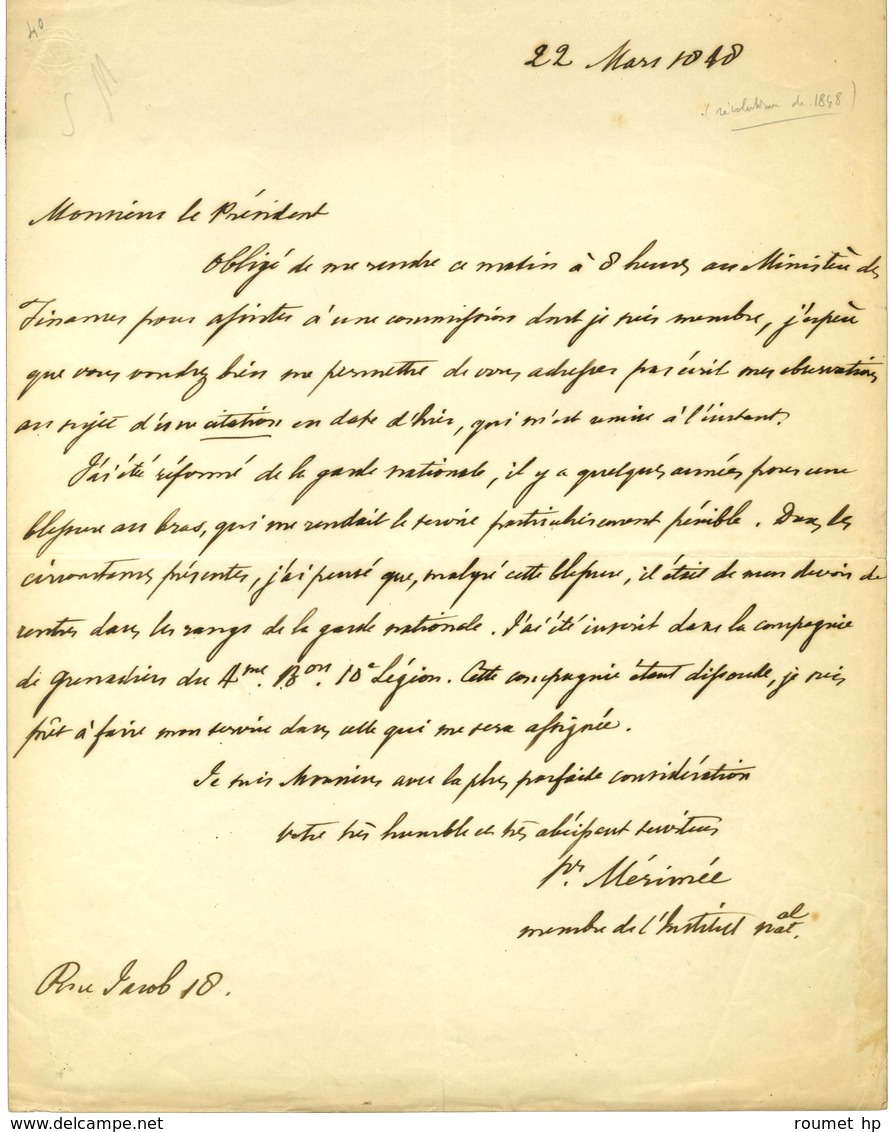 40
22 Mars 1848
(révolution de 1848)
Monsieur le Président
Obligé de me rendre ce matin à 8 heures au Ministère des
Finances pour assister à une commission dont je suis membre, j'espère
que vous voudrez bien me permettre de vous adresser par écrit mes observations
au sujet d'une citation en date d'hier, qui m'est remise à l'instant.
J'ai été réformé de la garde nationale, il y a quelques années pour une
blessure au bras, qui me rendait le service particulièrement pénible. Dans les
circonstances présentes, j'ai pensé que, malgré cette blessure, il était de mon devoir de
rentrer dans les rangs de la garde nationale. J'ai été inscrit dans la compagnie
de grenadiers du 4me. Bon. 10e Légion. Cette compagnie étant dissoute, je suis
prêt à faire mon service dans celle qui me sera assignée.
Je suis Monsieur avec la plus parfaite considération
votre très humble et très obéissant serviteur
Pr. Mérimée
membre de l'Institut nat.al
Rue Jacob 18.
roumet hp